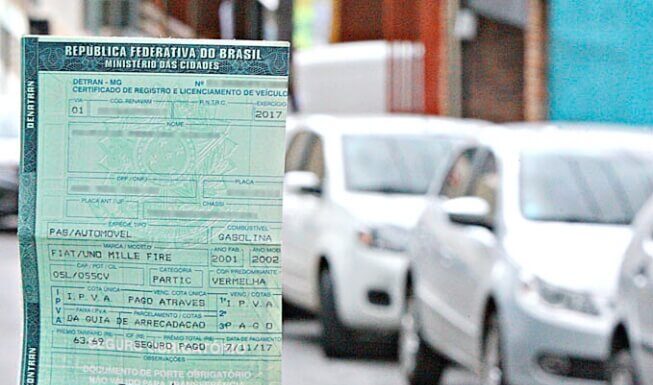 REPÚBLICA FEDERATIVA DO BRASIL
MINISTÉRIO DAS CIDADES
DENATRAN
DETRAN - MG Nº
CERTIFICADO DE REGISTRO E LICENCIAMENTO DE VEÍCULO
VIA CÓD. RENAVAM R.N.T.R.C. EXERCÍCIO
01 2017
NOME
CPF / CNPJ PLACA
PLACA ANT / UF CHASSI
ESPÉCIE TIPO COMBUSTÍVEL
PAS/AUTOMOVEL GASOLINA
MARCA / MODELO ANO FAB. ANO MOD.
FIAT/UNO MILLE FIRE 2001 2002
CAP / POT / CIL CATEGORIA COR PREDOMINANTE
05L/055CV PARTIC VERMELHA
IPVA
COTA ÚNICA VENC. COTA ÚNICA VENC. / COTAS
I.P.V.A PAGO ATRAVES 1ª I.P.V.A
FAIXA I.P.V.A. PARCELAMENTO / COTAS 2ª
DA GUIA DE ARRECADACAO 3ª P A G O
PRÊMIO TARIFÁRIO IOF PRÊMIO TOTAL DATA
63,69 SEGURO PAGO 7/11/17
OBSERVAÇÕES
DOCUMENTO DE PORTE OBRIGATÓRIO
NÃO VÁLIDO PARA TRANSFERÊNCIA